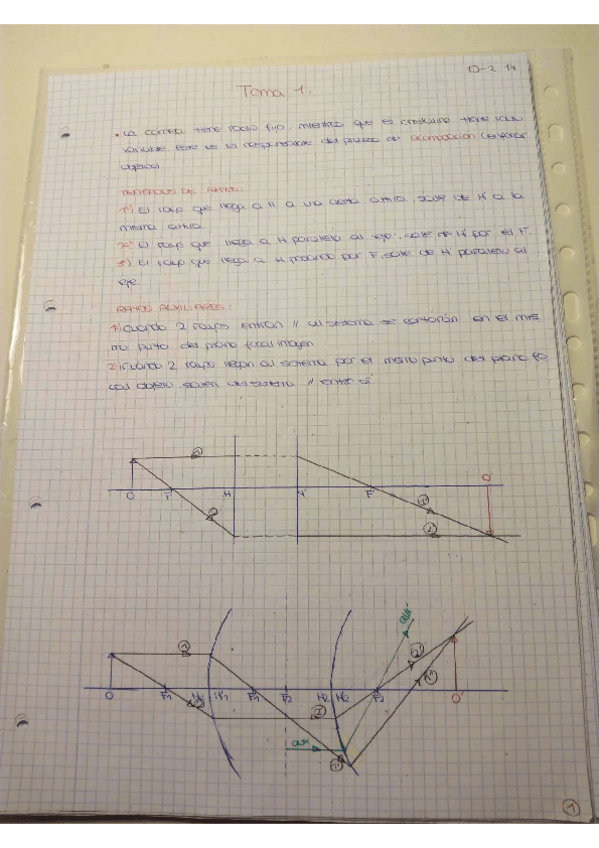 Tema 1.
• La cornea tiene radio fijo, mientras que el cristalino tiene radio
variable. Este es el responsable del proceso de acomodación (enfocar
objetos).
1º) El rayo que llega a H a una cierta altura, sale de H' a la
misma altura.
2º) El rayo que llega a H paralelo al eje, sale de H' por el F'.
3º) El rayo que llega a H pasando por F, sale de H' paralelo al
eje.
RAYOS AUXILIARES:
1) Cuando 2 rayos entran // al sistema se cortarán en el mis
mo punto del plano focal imagen
2) Cuando 2 rayos llegan al sistema por el mismo punto del plano fo
cal objeto, salen del sistema // entre sí
1
O'
O F H H' F'
1'
2'
2
1
2'
O F1 H1 H'1 F'1 F2 H2 H'2 F'2 O'
1'
2
2
1